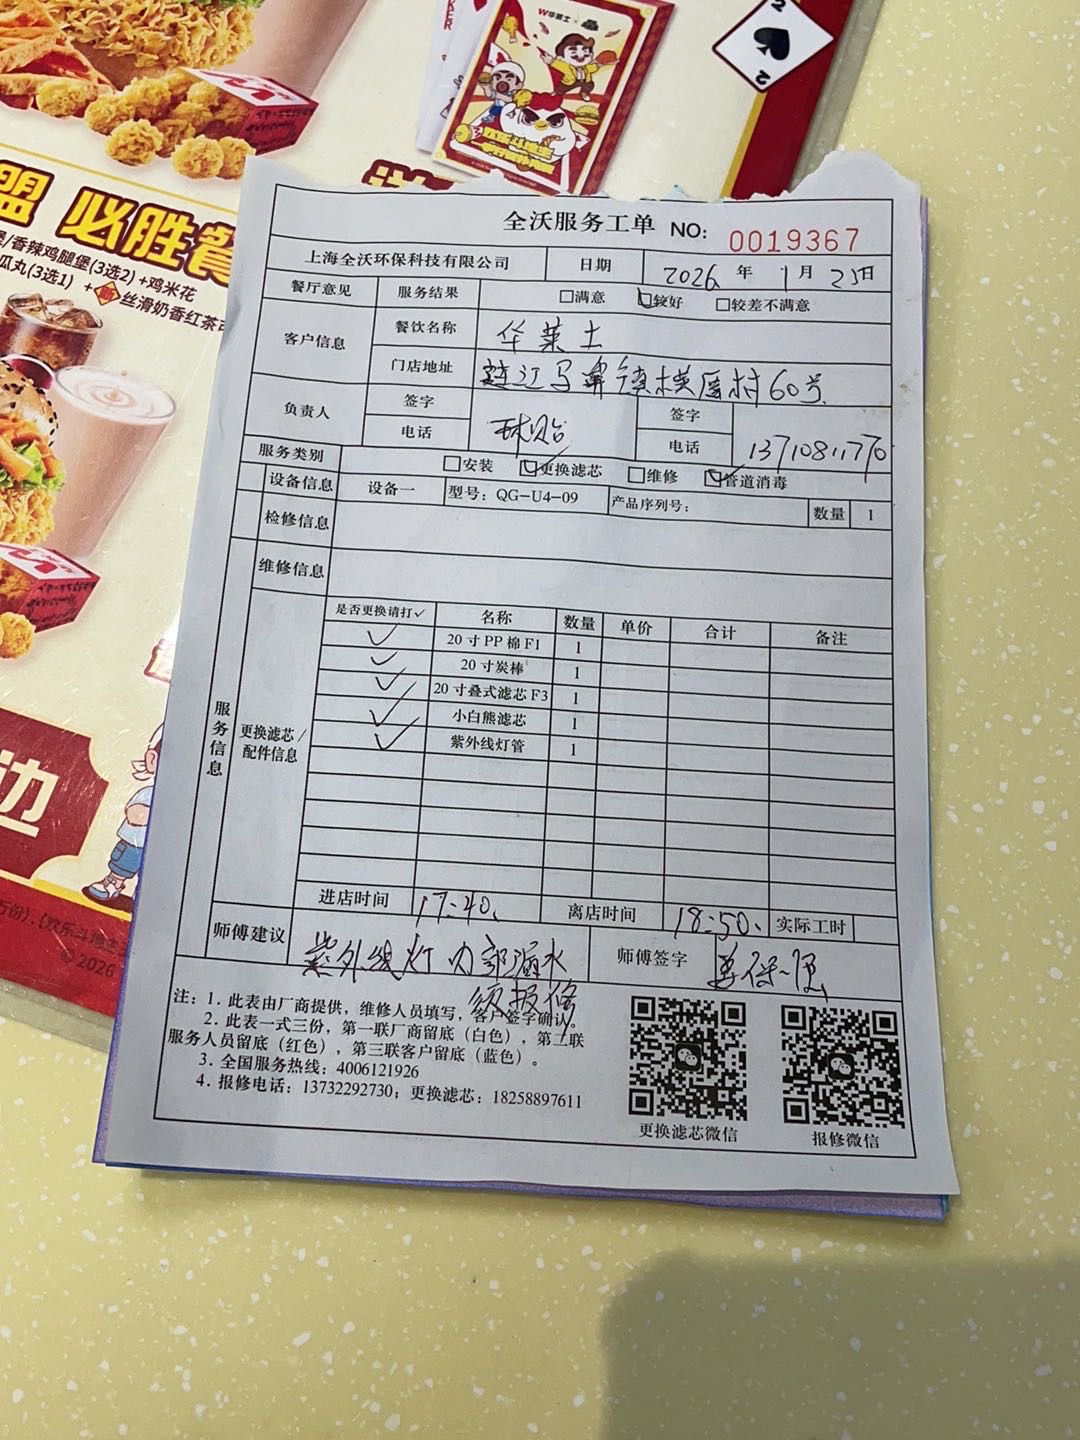 W华莱士
2
2
盟 必胜餐
香辣鸡腿堡(3选2)+鸡米花
瓜丸(3选1) + 丝滑奶香红茶
边
© 2026
全沃服务工单 NO: 0019367
上海全沃环保科技有限公司 日期 2026 年 1 月 25日
餐厅意见 服务结果 □满意 ☑较好 □较差不满意
客户信息 餐饮名称 华莱士
门店地址 马鼻镇 村60号
负责人 签字 签字
电话 电话 13710811770
服务类别 □安装 ☑更换滤芯 □维修 ☑管道消毒
设备信息 设备一 型号: QG-U4-09 产品序列号: 数量 1
检修信息
维修信息
服务信息
更换滤芯/配件信息
是否更换请打✓ 名称 数量 单价 合计 备注
✓ 20寸PP棉F1 1
✓ 20寸炭棒 1
✓ 20寸叠式滤芯F3 1
✓ 小白熊滤芯 1
✓ 紫外线灯管 1
进店时间 17:40 离店时间 18:50 实际工时
师傅建议 紫外线灯内部漏水 师傅签字
须报修
注: 1. 此表由厂商提供，维修人员填写，客户签字确认。
2. 此表一式三份，第一联厂商留底（白色），第二联
服务人员留底（红色），第三联客户留底（蓝色）。
3. 全国服务热线: 4006121926
4. 报修电话: 13732292730; 更换滤芯: 18258897611
更换滤芯微信 报修微信